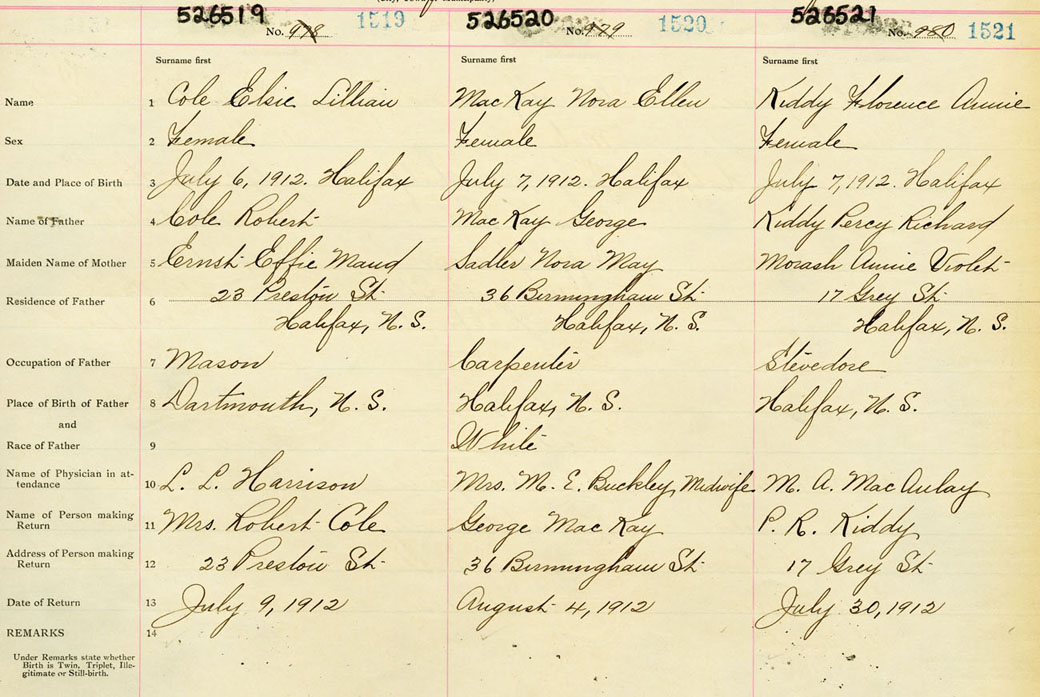 526519 526520 526521
No. 978 1519 No. 979 1520 No. 980 1521
Surname first Surname first Surname first
Name 1 Cole Elsie Lillian MacKay Nora Ellen Kiddy Florence Annie
Sex 2 Female Female Female
Date and Place of Birth 3 July 6, 1912. Halifax July 7, 1912. Halifax July 7, 1912. Halifax
Name of Father 4 Cole Robert MacKay George Kiddy Percy Richard
Maiden Name of Mother 5 Ernst Effie Maud Sadler Nora May Morash Annie Violet
Residence of Father 6 23 Preston St. 36 Birmingham St. 17 Grey St.
Halifax, N. S. Halifax, N. S. Halifax, N. S.
Occupation of Father 7 Mason Carpenter Stevedore
Place of Birth of Father 8 Dartmouth, N. S. Halifax, N. S. Halifax, N. S.
and
Race of Father 9 White
Name of Physician in at-
tendance 10 L. L. Harrison Mrs. M. E. Buckley, Midwife M. A. MacAulay
Name of Person making
Return 11 Mrs. Robert Cole George MacKay P. R. Kiddy
Address of Person making
Return 12 23 Preston St. 36 Birmingham St. 17 Grey St.
Date of Return 13 July 9, 1912 August 4, 1912 July 30, 1912
REMARKS 14
Under Remarks state whether
Birth is Twin, Triplet, Ille-
gitimate or Still-birth.